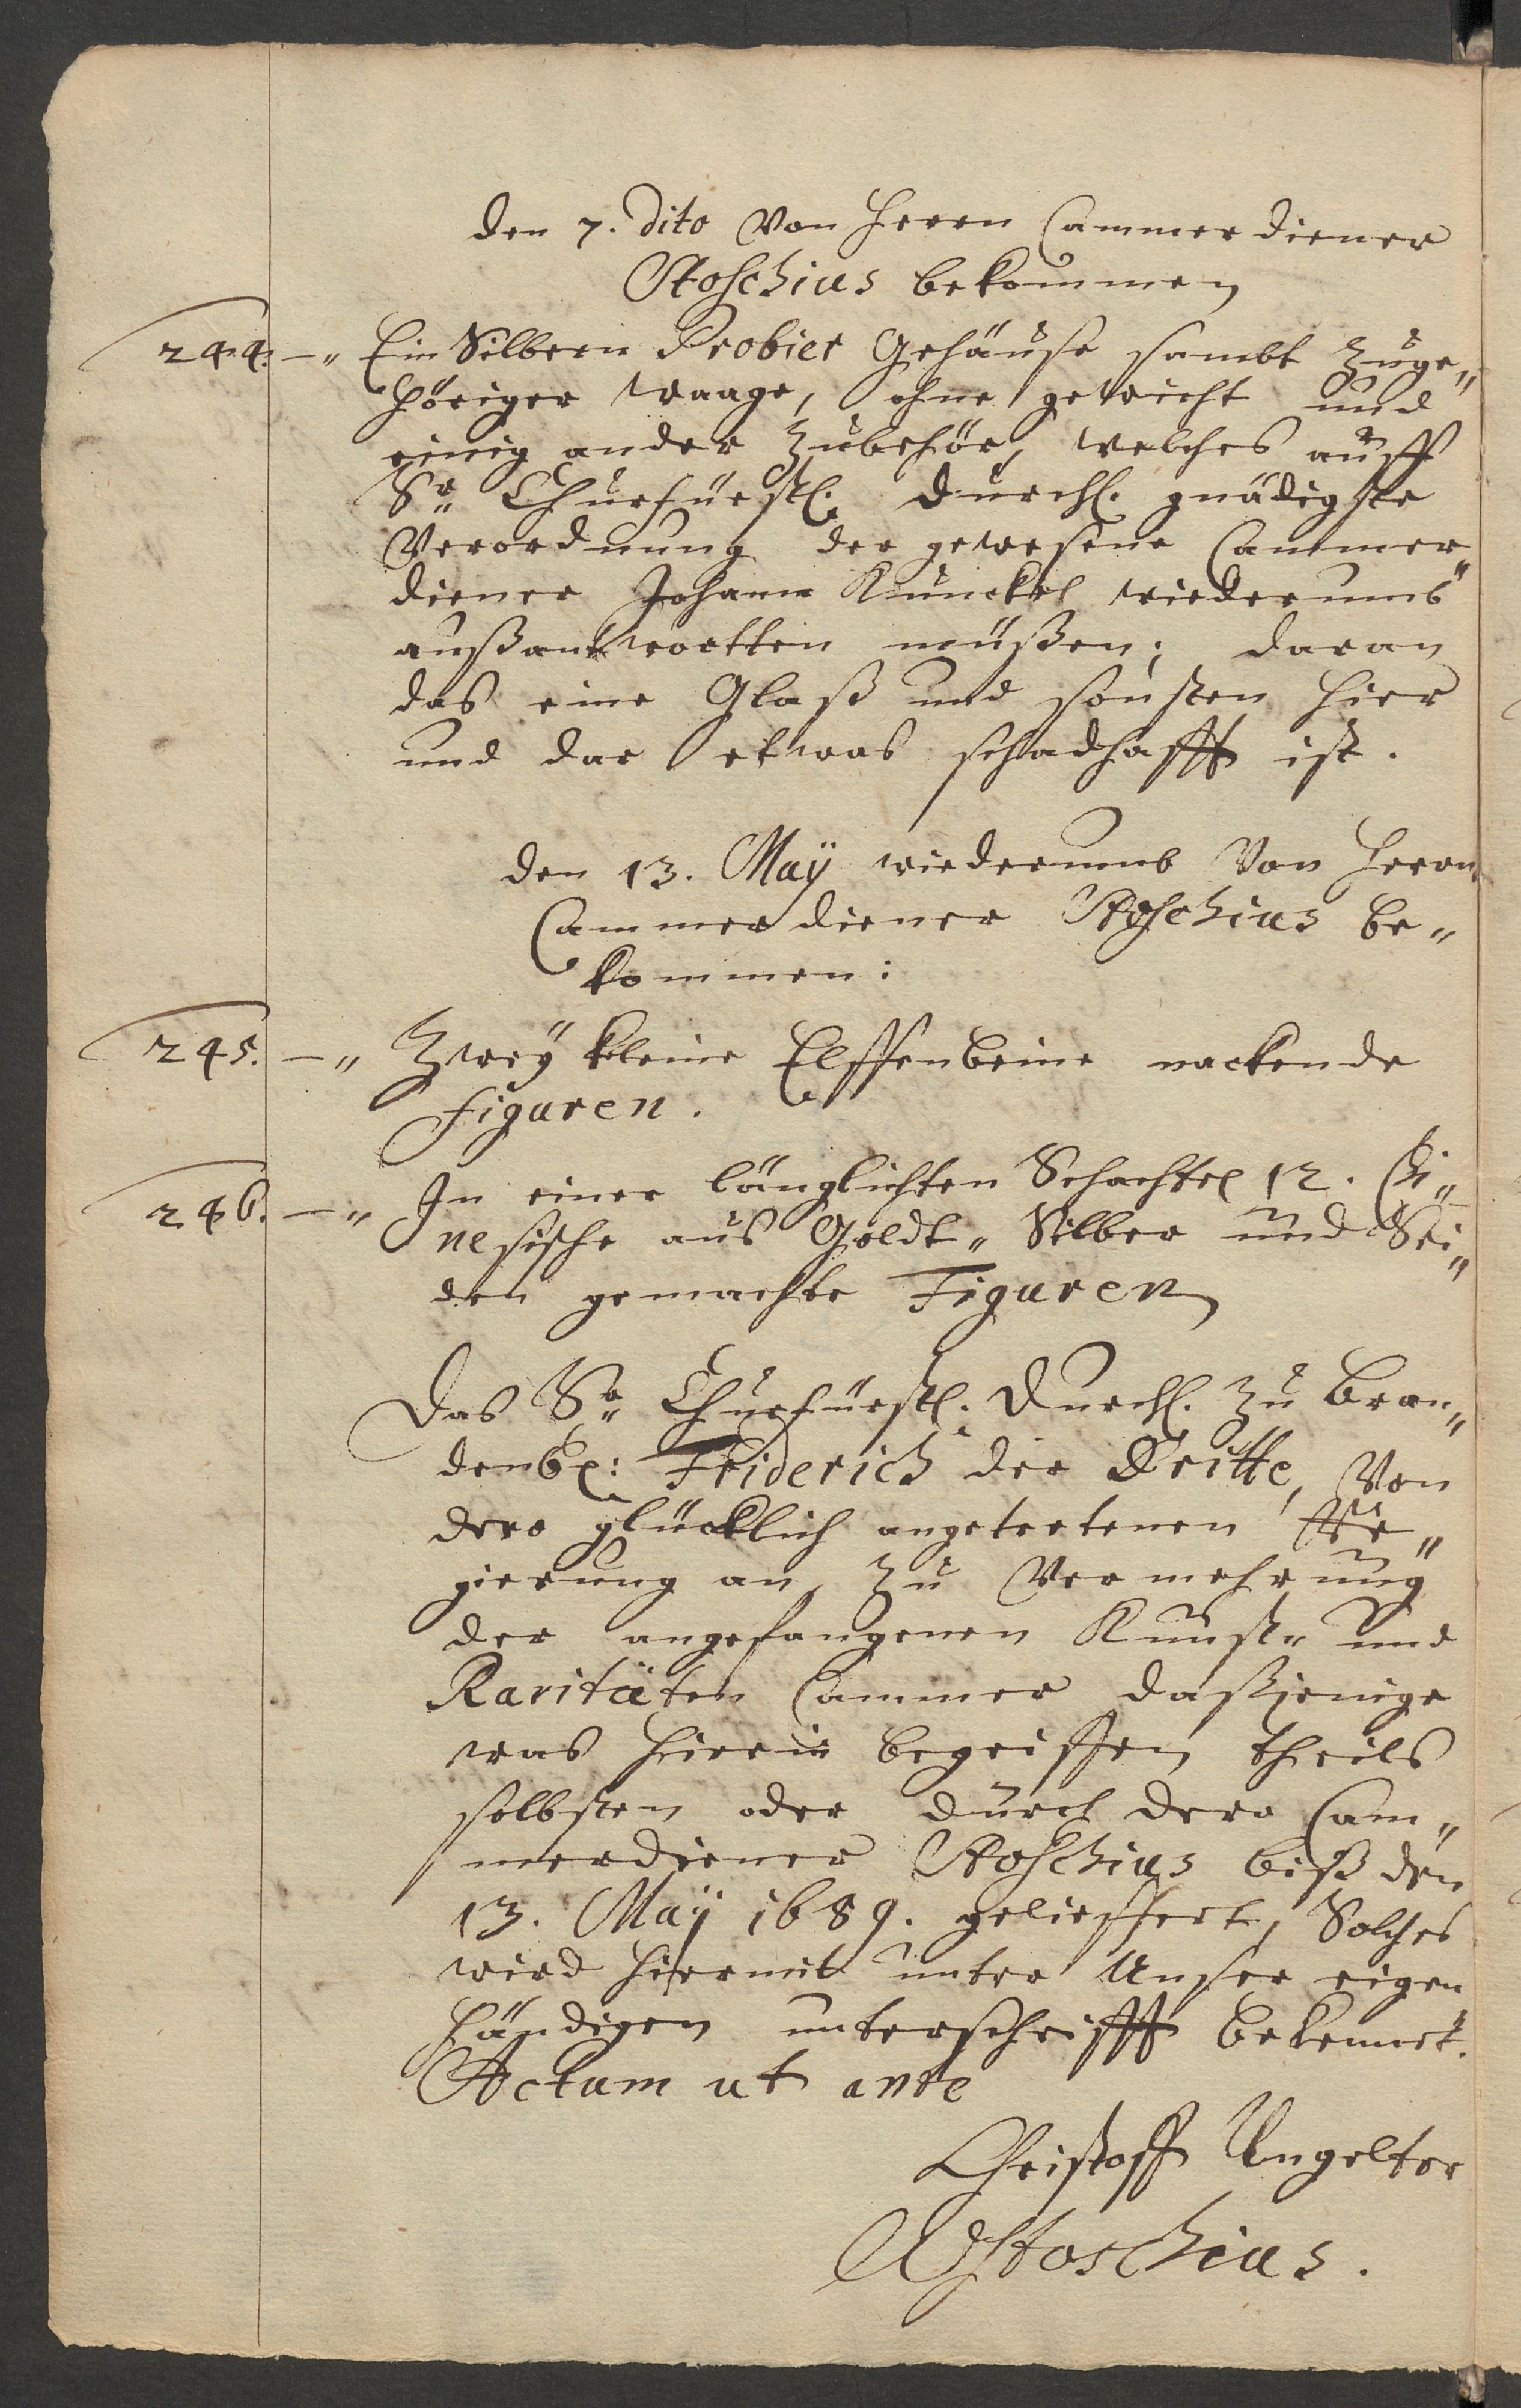 den 7. dito Von Herrn Cammerdiener
Stoschius bekommen
244. —„ Ein Silbern Probier Gehäuse sambt Zuge„
höriger Waage, ohne gewicht und
einig ander Zubehör, welches auff
Sr„ Churfürstl. Durchl. gnädigste
Verordnung der gewesene Cammer„
diener Johann Kunckel wiederumb
außantwortten müßen; daran
das eine Glaß und sonsten hier
und dar etwas schadhafft ist.
den 13. Maÿ wiederumb Von Herrn
Cammerdiener Stoschius be„
kommen:
245. —„ Zweÿ kleine Elffenbeine nackende
figuren.
246. —„ In einer länglichten Schachtel 12. Chi„
nesische aus Goldt„ Silber und Sei„
den gemachte Figuren
Das Sr„ Churfürstl. Durchl. zu Bran„
denb: Friderich der Dritte, Von
dero glücklich angetretenen Re„
gierung an, zu Vermehrung
der angefangenen Kunst„ und
Raritäten Cammer daßjenige
was hierin begriffen theils
selbsten oder durch dero Cam„
merdiener Stoschius biß den
13. Maÿ 1689. gelieffert, Solches
wird hiermit unter Unser eigen
händigen unterschrifft bekennet.
Actum ut ante
Christoff Ungelter
CStoschius.